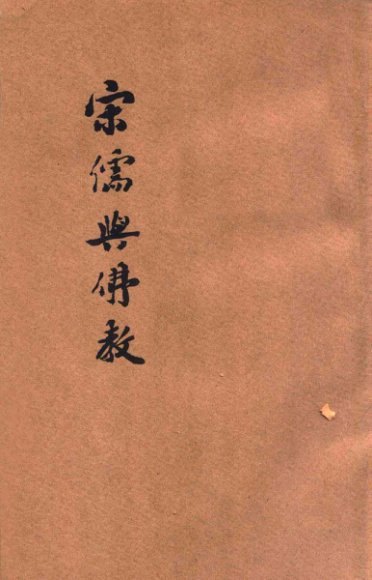 宋儒與佛教